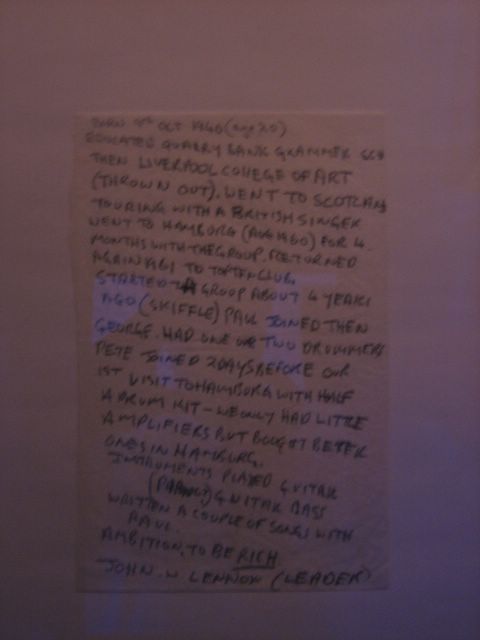 BORN 9TH OCT 1940 (age 20)
EDUCATED QUARRY BANK GRAMMER SCH
THEN LIVERPOOL COLLEGE OF ART
(THROWN OUT). WENT TO SCOTLAND
TOURING WITH A BRITISH SINGER
WENT TO HAMBURG (AUG 1960) FOR 4
MONTHS WITH THE GROUP. RETURNED
AGAIN 1961 TO TOPTEN CLUB.
STARTED A GROUP ABOUT 4 YEARS
AGO (SKIFFLE) PAUL JOINED THEN
GEORGE. HAD ONE OR TWO DRUMMERS
PETE JOINED 2 DAYS BEFORE OUR
1ST VISIT TO HAMBURG WITH HALF
A DRUM KIT - WE ONLY HAD LITTLE
AMPLIFIERS BUT BOUGHT BETER
ONES IN HAMBURG.
INSTRUMENTS PLAYED GUITAR
GUITAR BASS
WRITTEN A COUPLE OF SONGS WITH
PAUL.
AMBITION, TO BE RICH
JOHN. W LENNON (LEADER)